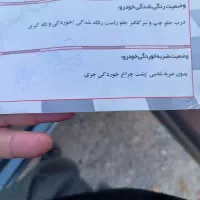 وضعیت رنگی شدگی خودرو:
درب جلو چپ و سرگلگیر جلو راست رنگ شدگی /خوردگی و لکه گیری
وضعیت ضربه خوردگی خودرو:
بدون ضربه شاسی /پشت چراغ خوردگی جزی